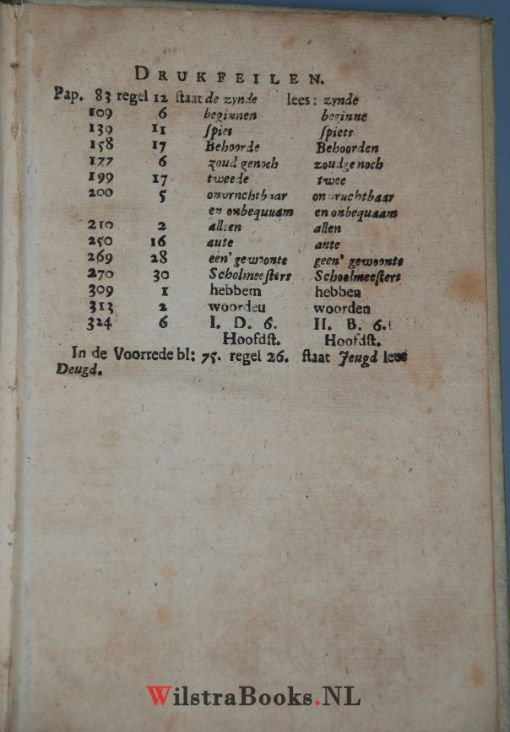 DRUKFEILEN.
Pap. 83 regel 12 ſtaat de zynde lees: zynde
109 6 beginnen beginne
139 11 ſpiet ſpiets
158 17 Behoorde Behoorden
177 6 zoud genoch zoudge noch
199 17 tweede twee
200 5 onvrnchtbaar onvruchtbaar
en onbequuam en onbequaam
210 2 alleen allen
250 16 aute ante
269 28 een' gewoonte geen' gewoonte
270 30 Scholmeeſters Schoolmeeſters
309 1 hebbem hebben
313 2 woordeu woorden
324 6 I. D. 6. II. B. 6.
Hoofdſt. Hoofdſt.
In de Voorrede bl: 75. regel 26. ſtaat Jeugd lees
Deugd.
WilstraBooks.NL